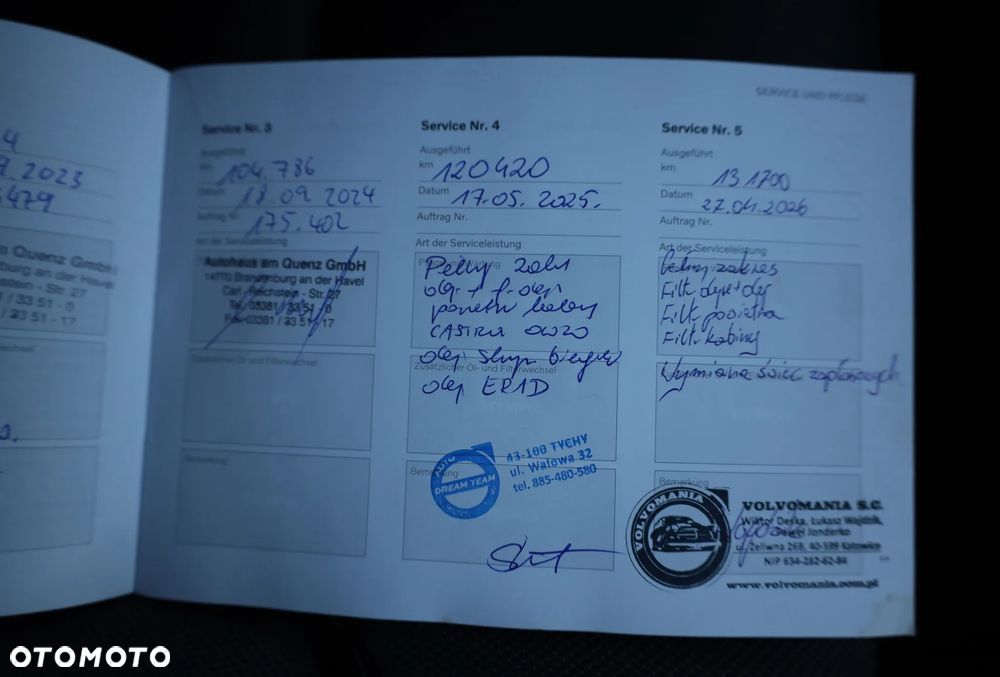 SERVICE UND PFLEGE
4
9.2023
479
m Quenz GmbH
burg an der Hav
nstein - Str. 27
/ 33 51 - 0
/ 33 51 - 17
Service Nr. 3
Ausgeführt
km 104.786
Datum 18.09 2024
Auftrag Nr. 175.402
Art der Serviceleistung
Autohaus am Quenz GmbH
14770 Brandenburg an der Havel
Carl - Reichstein - Str. 27
Tel. 03381 / 33 51 - 0
Fax 03381 / 33 51 - 17
Zusätzlicher Öl- und Filterwechsel
Bemerkung
Service Nr. 4
Ausgeführt
km 120420
Datum 17.05. 2025.
Auftrag Nr.
Art der Serviceleistung
olej + f. olej
CASTROL 0W20
olej
Zusätzlicher Öl- und Filterwechsel
olej
Bemerkung
AUTO
DREAM TEAM
43-100 TYCHY
ul. Wałowa 32
tel. 885-480-580
Service Nr. 5
Ausgeführt
km 131700
Datum 27.04.2026
Auftrag Nr.
Art der Serviceleistung
Pełny zakres
Filtr olej + olej
Filtr powietrza
Filtr kabiny
Wymiana świec zapłonowych
Bemerkung
VOLVOMANIA
VOLVOMANIA S.C.
Wiktor Deska, Łukasz Wojdzik,
Jonderko
ul. Żeliwna 26B, 40-599 Katowice
NIP 634-282-62-84
www.volvomania.com.pl
OTOMOTO